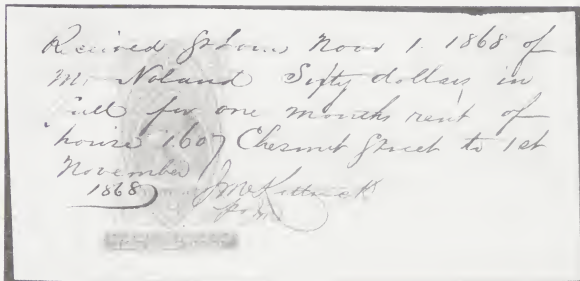 Received St Louis Novr 1. 1868 of
Mr Noland Fifty dollars in
full for one months rent of
house 1607 Chesnut Street to 1st
November
1868 J McKittrick